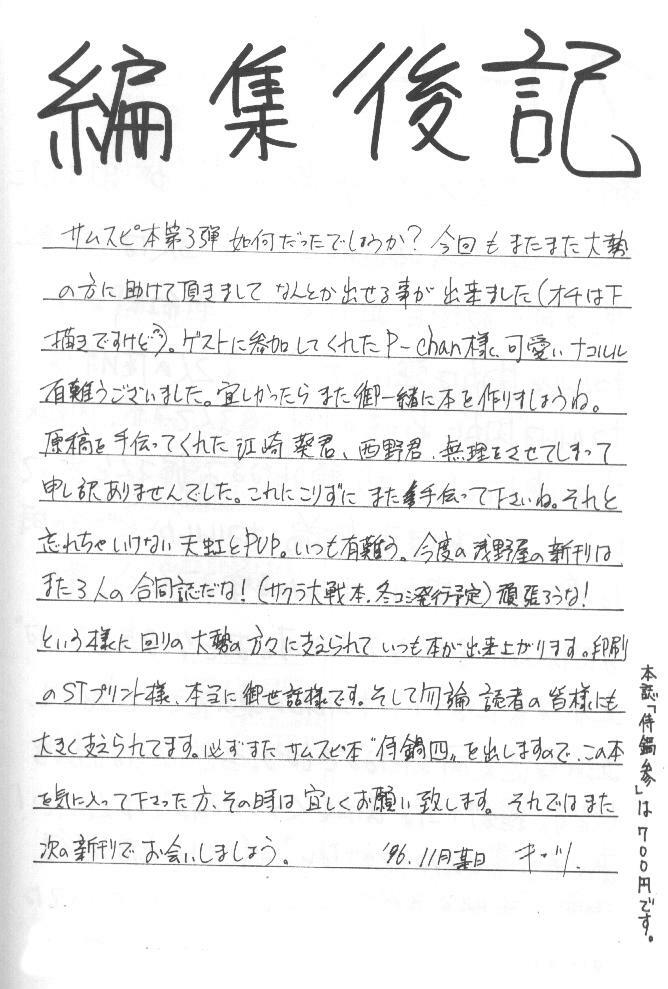 編集後記
サムスピ本第3弾 如何だったでしょうか？ 今回もまたまた大勢
の方に助けて頂きまして なんとか出せる事が出来ました(オチは下
描きですけど)。ゲストに参加してくれたP-chan様、可愛いナコルル
有難うございました。宜しかったらまた御一緒に本を作りましょうね。
原稿を手伝ってくれた江崎葵君、西野君、無理をさせてしまって
申し訳ありませんでした。これにこりずに また手伝って下さいね。それと
忘れちゃいけない 天虹とPUP。いつも有難う。今度の浅野屋の新刊は
また3人の合同誌だな！(サクラ大戦本、冬コミ発行予定)頑張ろうな！
という様に 回りの大勢の方々に支えられて いつも本が出来上がります。印刷
のSTプリント様、本当に御世話様です。そして勿論 読者の皆様にも
大きく支えられてます。必ずまた サムスピ本〝侍鍋四〟を出しますので、この本
を気に入って下さった方、その時は宜しくお願い致します。それではまた
次の新刊で お会いしましょう。 '96.11月某日 キ・ツ.
本誌「侍鍋参」は700円です。